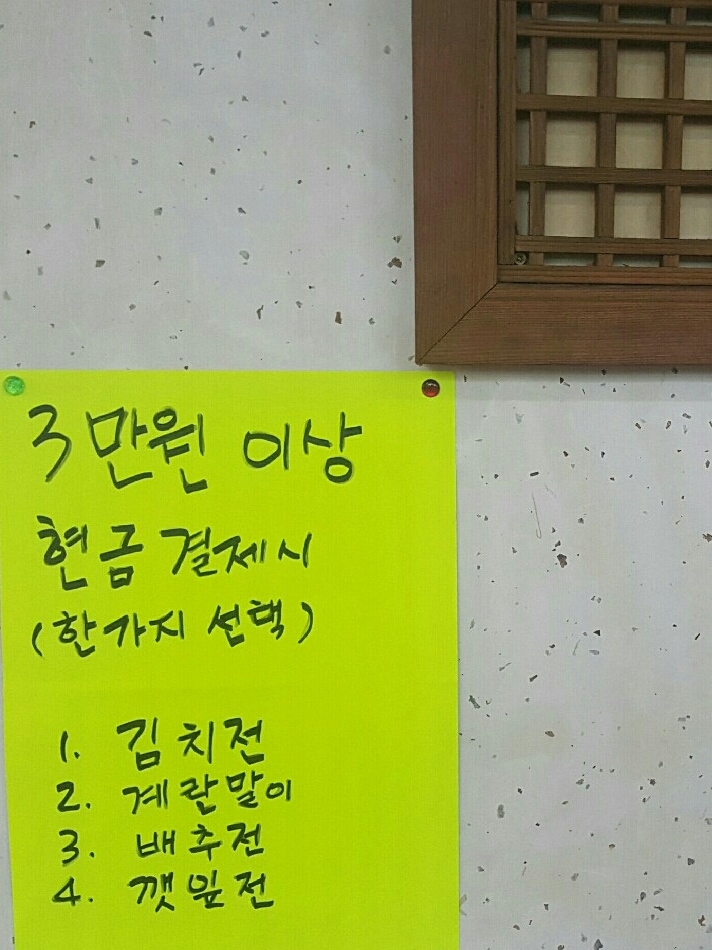 3만원 이상
현금 결제시
(한가지 선택)
1. 김치전
2. 계란말이
3. 배추전
4. 깻잎전